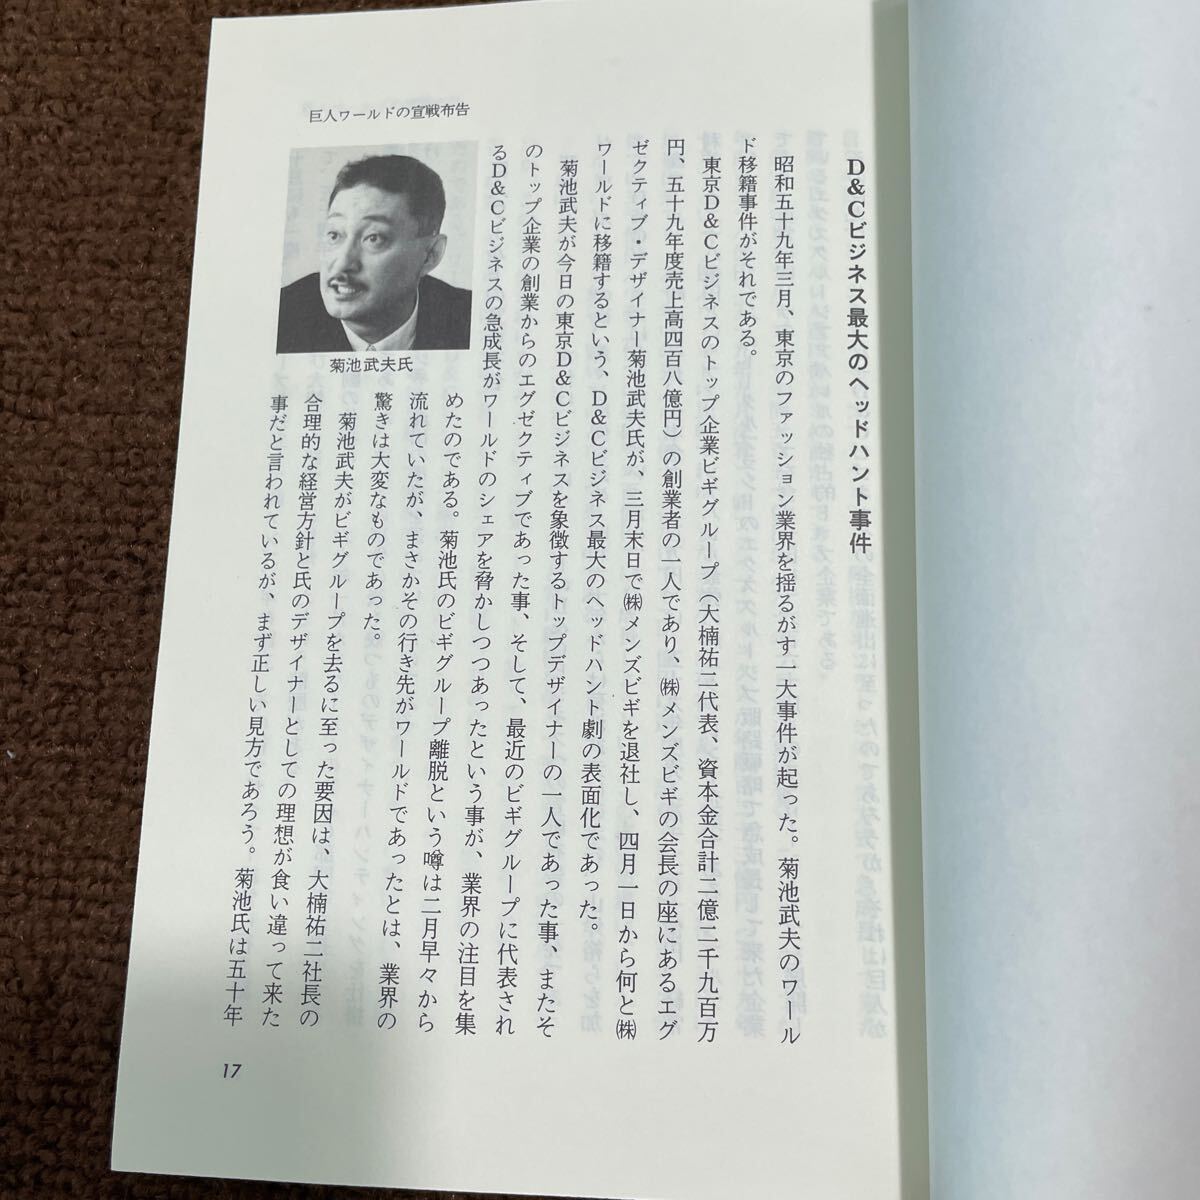 巨人ワールドの宣戦布告
D&Cビジネス最大のヘッドハント事件
昭和五十九年三月、東京のファッション業界を揺るがす一大事件が起った。菊池武夫のワール
ド移籍事件がそれである。
東京D&Cビジネスのトップ企業ビギグループ(大楠祐二代表、資本金合計二億二千九百万
円、五十九年度売上高四百八億円)の創業者の一人であり、㈱メンズビギの会長の座にあるエグ
ゼクティブ・デザイナー菊池武夫氏が、三月末日で㈱メンズビギを退社し、四月一日から何と㈱
ワールドに移籍するという、D&Cビジネス最大のヘッドハント劇の表面化であった。
菊池武夫が今日の東京D&Cビジネスを象徴するトップデザイナーの一人であった事、またそ
のトップ企業の創業からのエグゼクティブであった事、そして、最近のビギグループに代表され
るD&Cビジネスの急成長がワールドのシェアを脅かしつつあったという事が、業界の注目を集
めたのである。菊池氏のビギグループ離脱という噂は二月早々から
流れていたが、まさかその行き先がワールドであったとは、業界の
驚きは大変なものであった。
菊池武夫がビギグループを去るに至った要因は、大楠祐二社長の
合理的な経営方針と氏のデザイナーとしての理想が食い違って来た
事だと言われているが、まず正しい見方であろう。菊池氏は五十年
菊池武夫氏
17